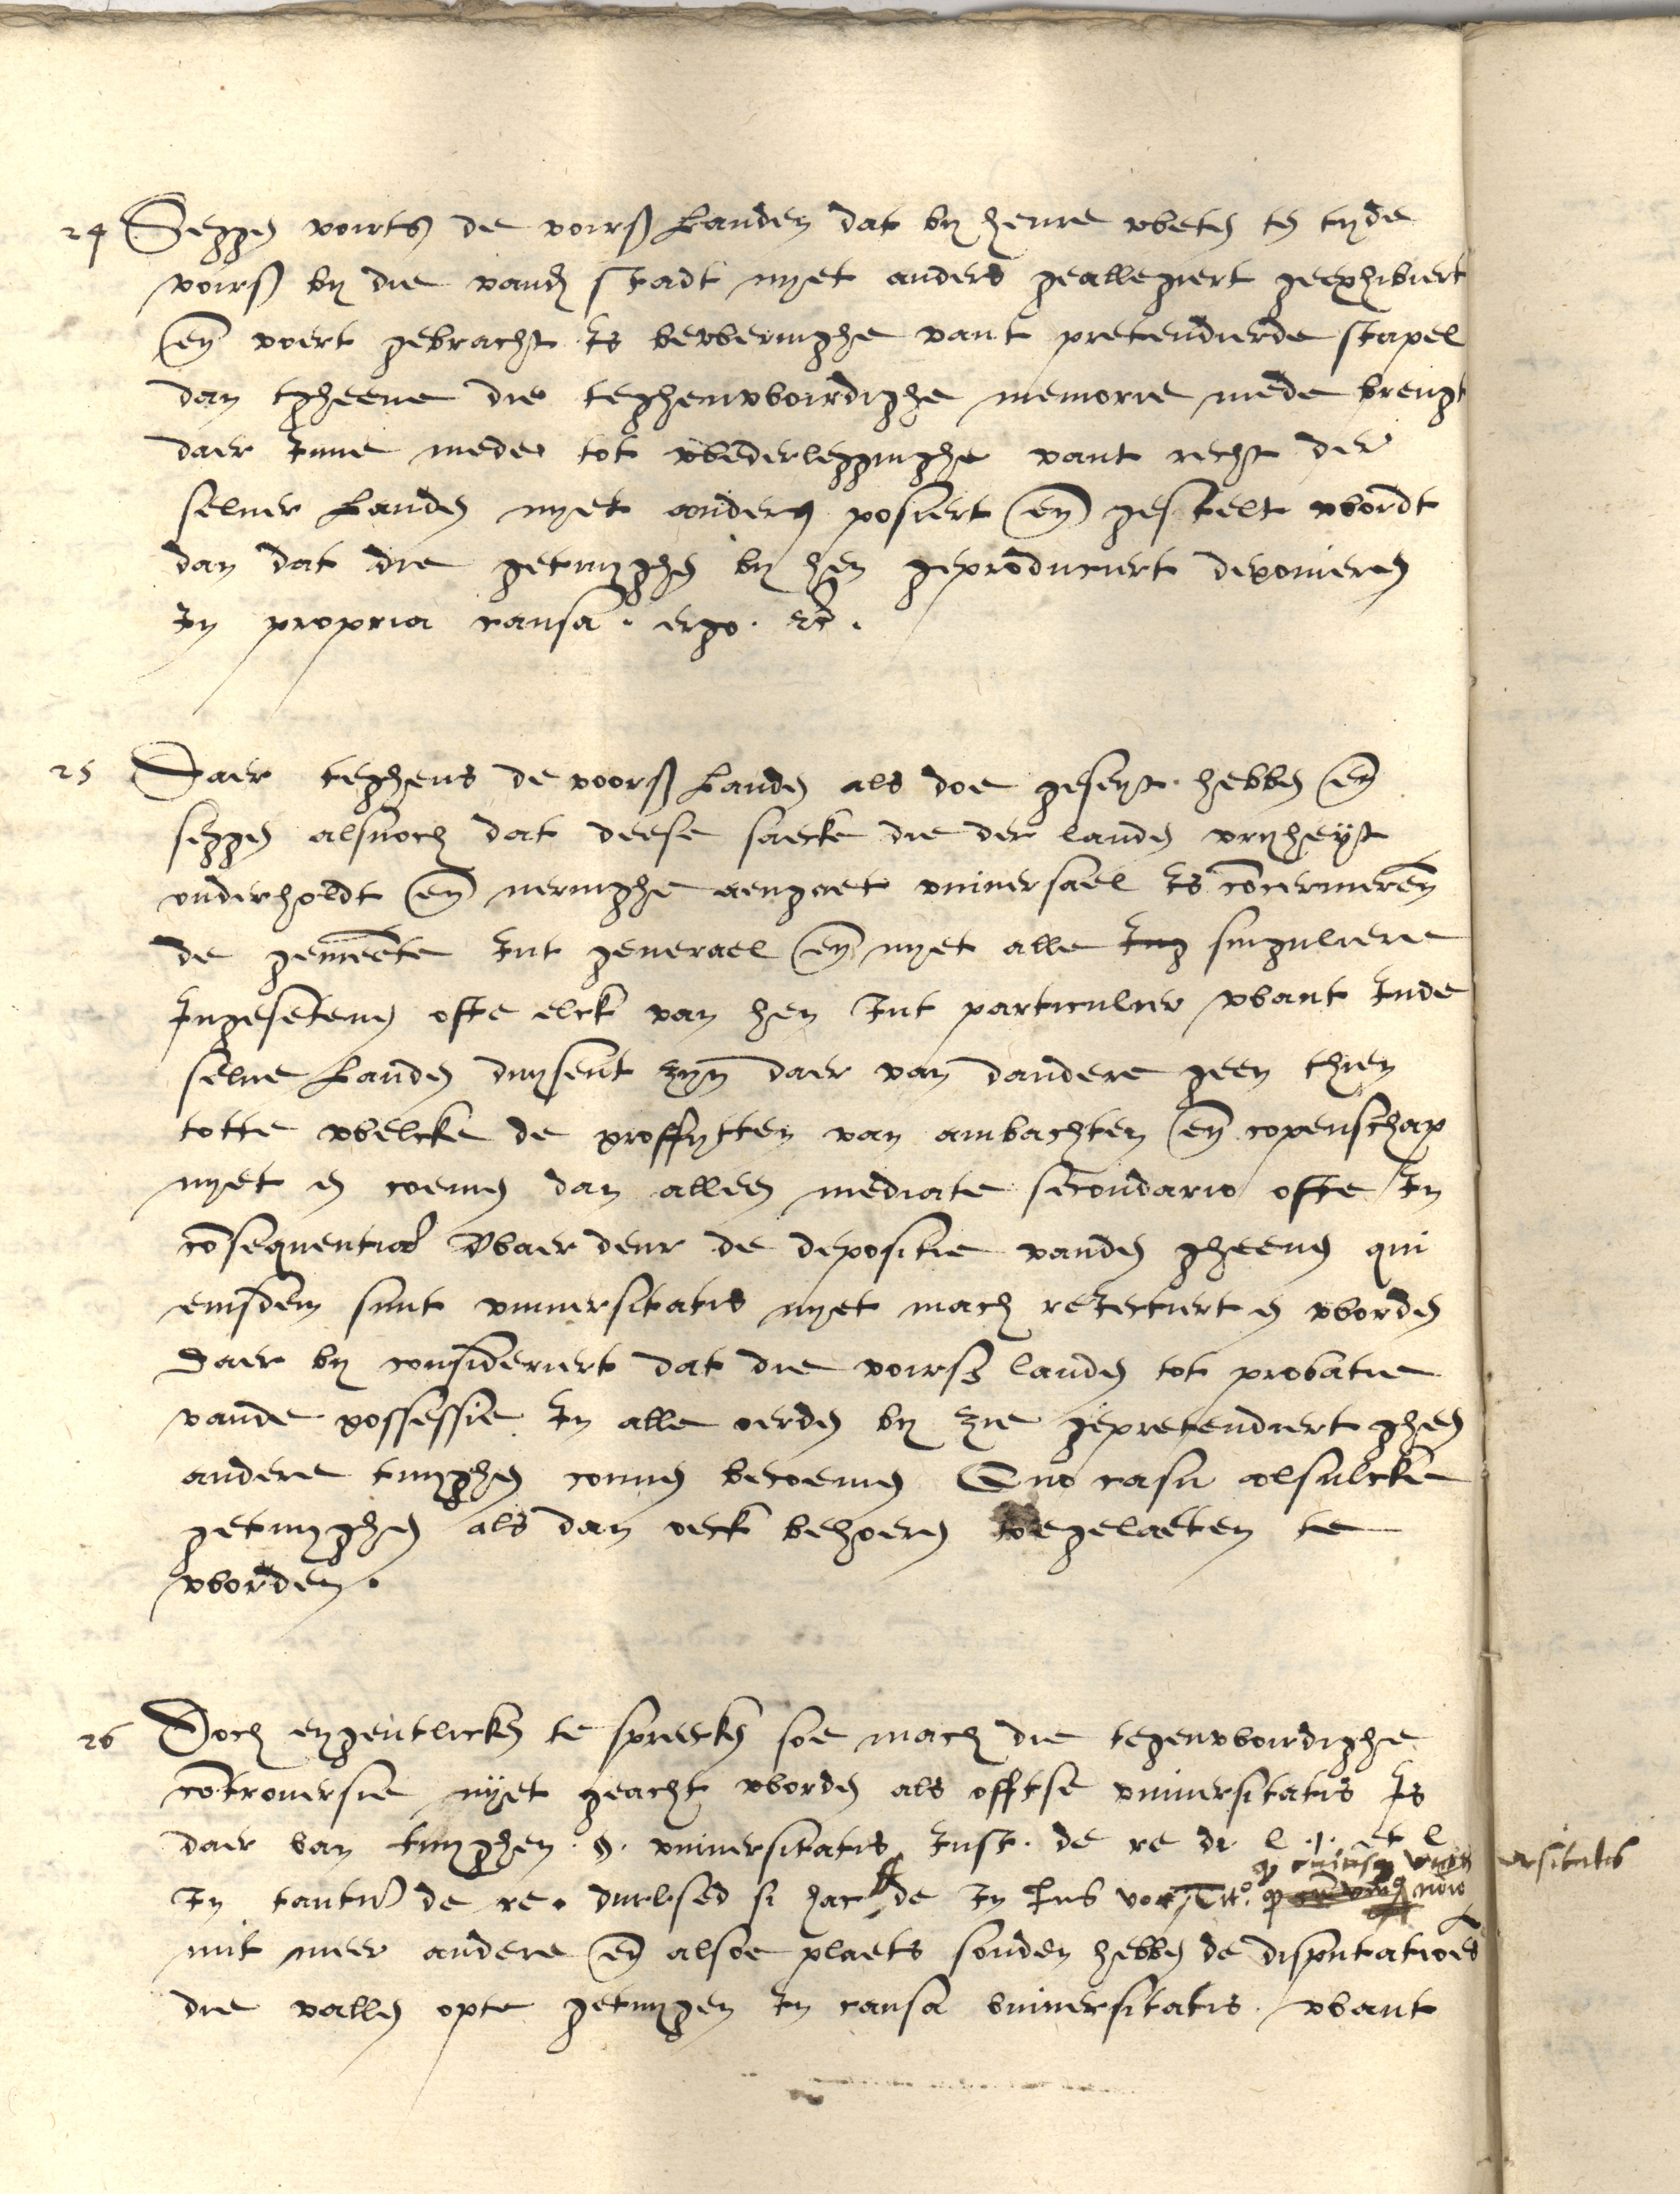 24 Seggen voirts de voirs Landen dat by heure weten ten tyde
voirs by die vander Stadt nyet anders geallegiert geexhibiert
en voert gebracht Is beweringhe vant pretendierde stapel
dan tgheene die teghenwoirdighe memorie mede brengt
daer Inne mede tot wederlegginghe vant recht der
selver Landen nyet anders posiert en gestelt wordt
dan dat die getuyghen by hen geproduciert deponieren
In propria causa. ergo. etc.
25 Daer teghens de voors Landen als doe geseyt hebben en
seggen alsnoch dat deese saecke die der landen vryheyt
onderholdt en neringhe aengaet universael Is concerneren
de gemeente Int generael en nyet alle Ing singuliere
Ingesetenen ofte elck van hen Int particulier want Inde
selve Landen duysent zyn daer van dandere geen thien
totte welcke de proffytten van ambachten en copenschap
nyet en coemen dan alleen mediate secondario ofte In
consequentia Waer deur de depositie vanden gheenen qui
eiusdem sunt universitatis nyet mach reiectiert en worden
Daer by consideriert dat die voirs landen tot probatie
vande possessie In alle oerden by zie gepretendiert gheen
andere tuyghen connen becoemen Quo casu alsulcke
getuyghen als dan oeck behoeren toegelaeten te
worden.
26 Doch eygentlicken te spreecken soe mach die tegenwoirdighe
controversie nyet geacht worden als offtse universitatis Is
daer van tuyghen. §. universitatis Inst. de re di l. 1. et l
In tantum de re. di l. sed si hac de In Ius voc. Tit. q cuiusq universitatis
mit meer andere en alsoe plaets souden hebben de disputationes
die vallen opte getuygen In causa universitatis. want